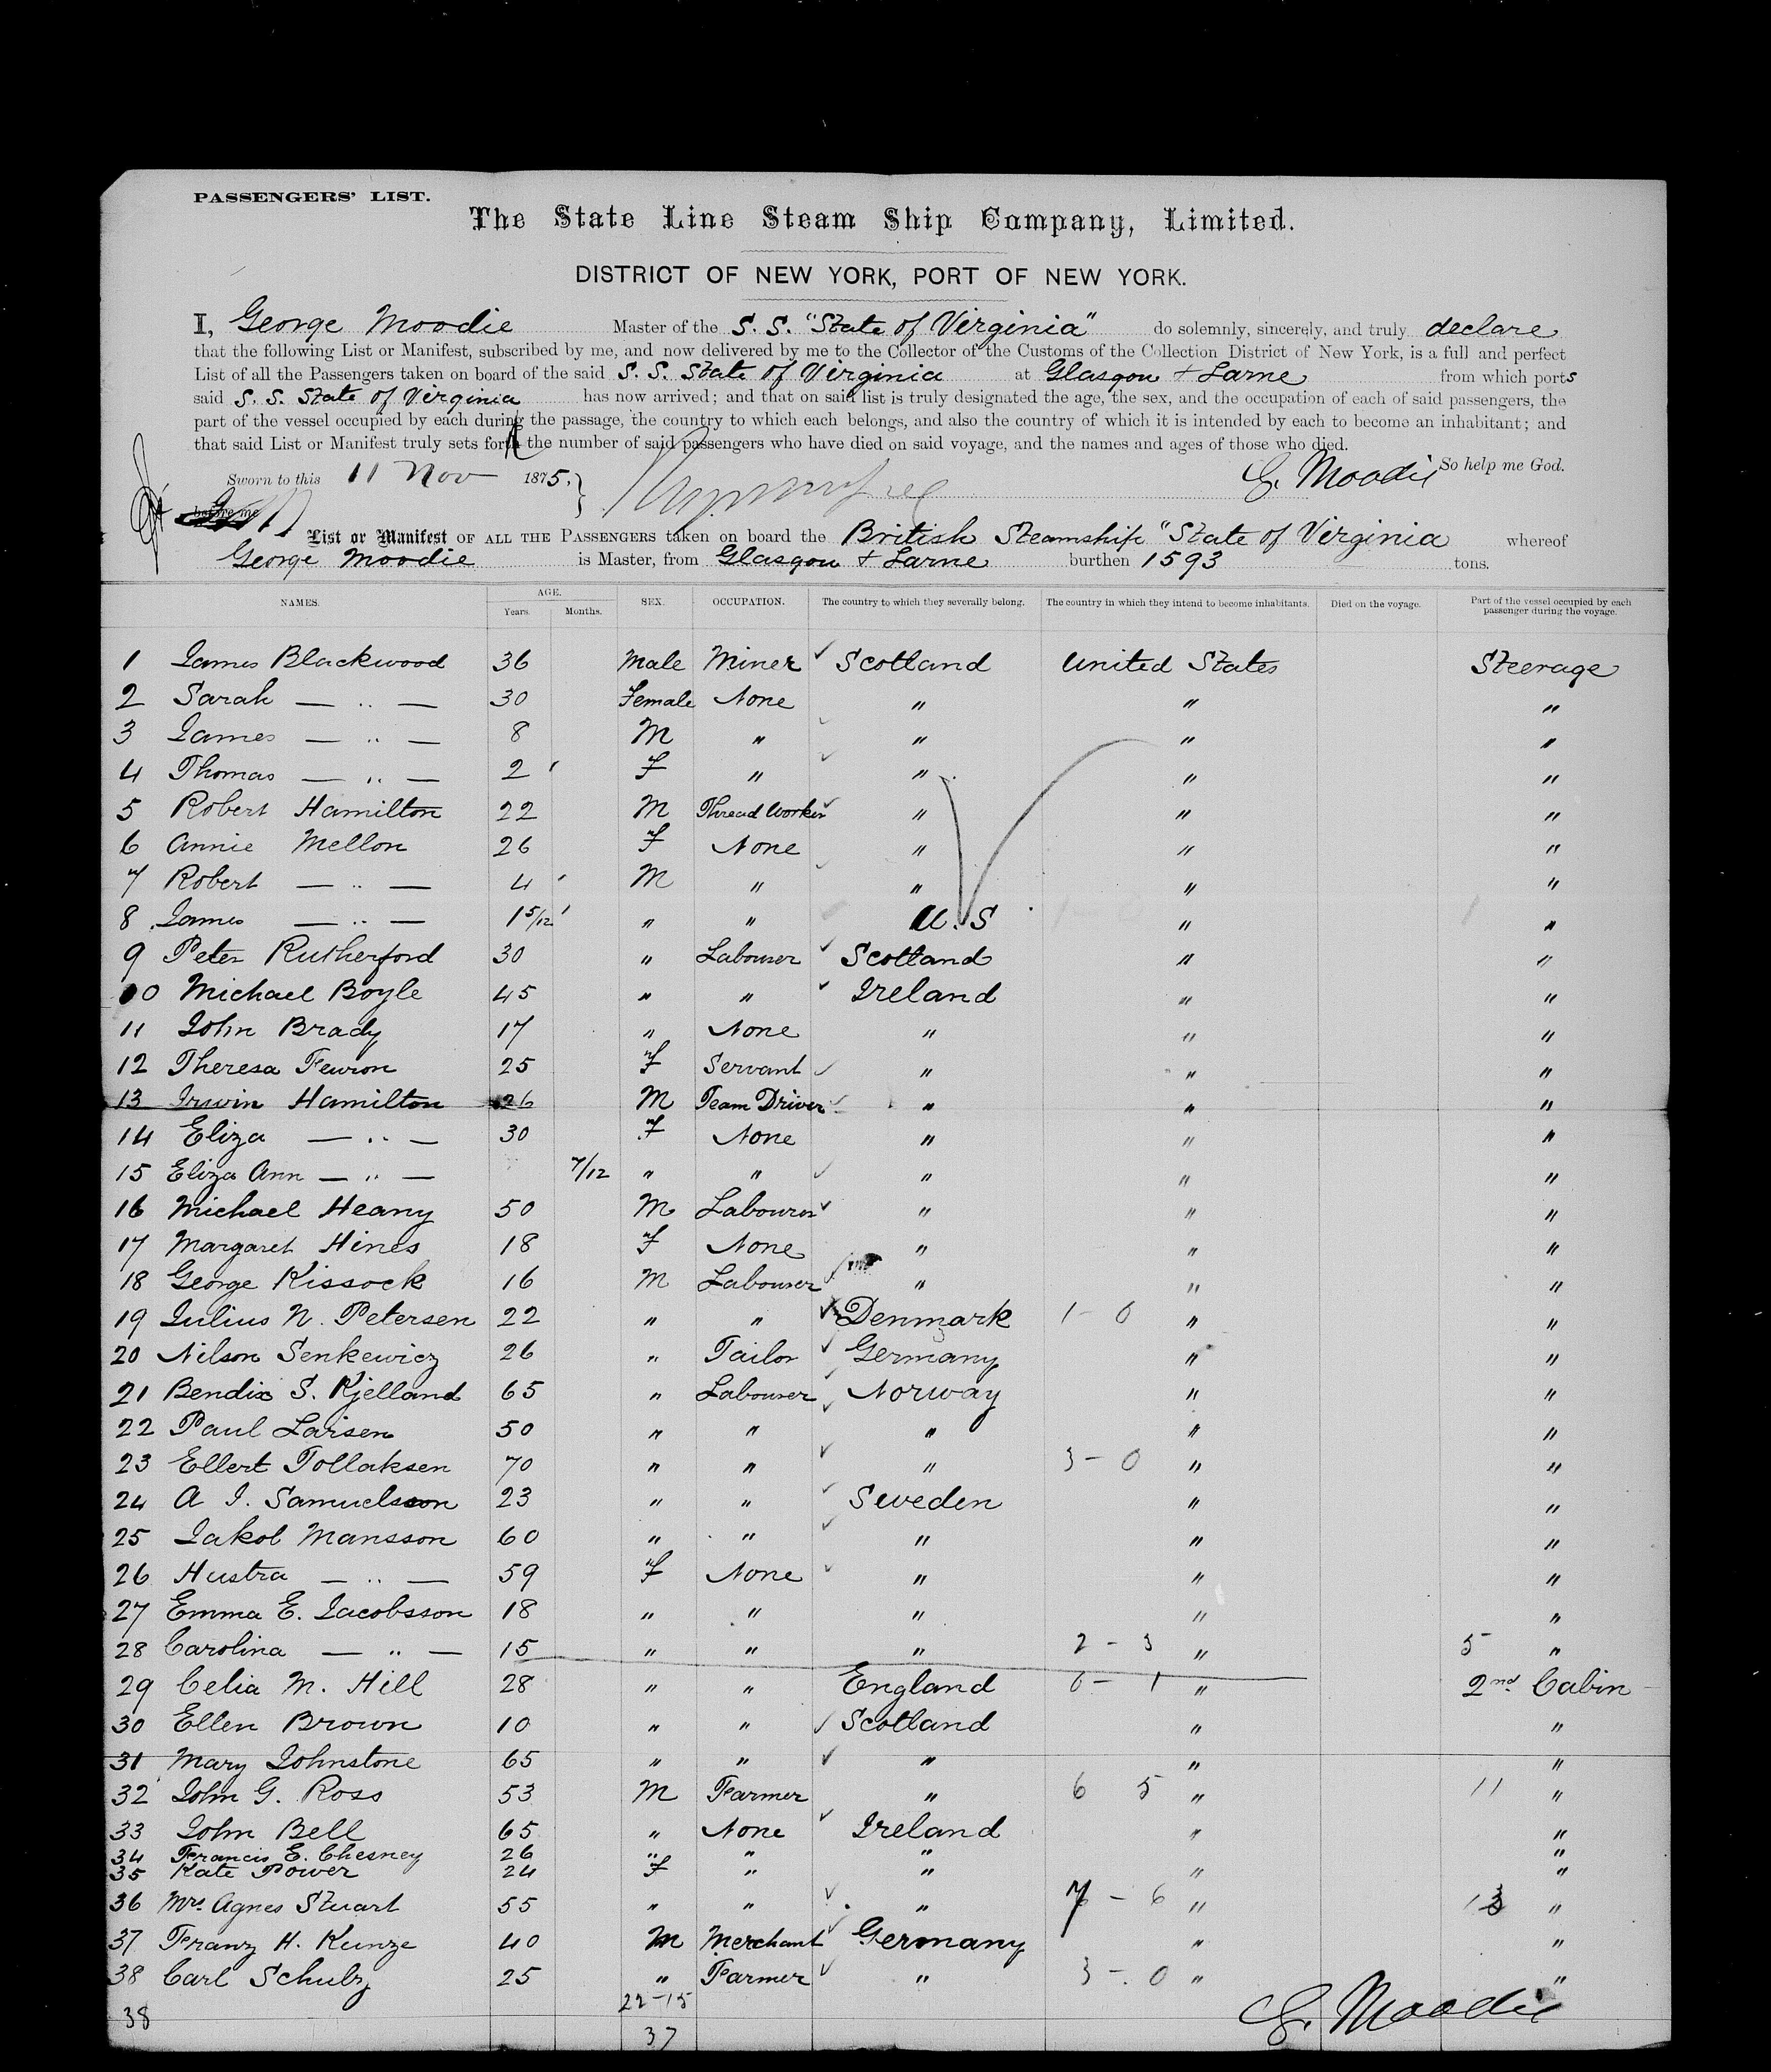 PASSENGERS' LIST.
The State Line Steam Ship Company, Limited.
DISTRICT OF NEW YORK, PORT OF NEW YORK.
I, George Moodie Master of the S. S. "State of Virginia" do solemnly, sincerely, and truly declare
that the following List or Manifest, subscribed by me, and now delivered by me to the Collector of the Customs of the Collection District of New York, is a full and perfect
List of all the Passengers taken on board of the said S. S. State of Virginia at Glasgow & Larne from which ports
said S. S. State of Virginia has now arrived; and that on said list is truly designated the age, the sex, and the occupation of each of said passengers, the
part of the vessel occupied by each during the passage, the country to which each belongs, and also the country of which it is intended by each to become an inhabitant; and
that said List or Manifest truly sets forth the number of said passengers who have died on said voyage, and the names and ages of those who died.
So help me God.
Sworn to this 11 Nov 1875. G. Moodie
before me
List or Manifest OF ALL THE PASSENGERS taken on board the British Steamship "State of Virginia whereof
George Moodie is Master, from Glasgow & Larne burthen 1593 tons.
NAMES. AGE. Years. Months. SEX. OCCUPATION. The country to which they severally belong. The country in which they intend to become inhabitants. Died on the voyage. Part of the vessel occupied by each passenger during the voyage.
1 James Blackwood 36 Male Miner Scotland United States Steerage
2 Sarah — " — 30 Female None " " "
3 James — " — 8 M " " " "
4 Thomas — " — 2 F " " " "
5 Robert Hamilton 22 M Thread Worker " " "
6 Annie Mellon 26 F None " " "
7 Robert — " — 4 M " " " "
8 James — " — 1 5/12 " " U.S " "
9 Peter Rutherford 30 " Labourer Scotland " "
10 Michael Boyle 45 " " Ireland " "
11 John Brady 17 " None " " "
12 Theresa Fewron 25 F Servant " " "
13 Irwin Hamilton 26 M Team Driver " " "
14 Eliza — " — 30 F None " " "
15 Eliza Ann — " — 7/12 " " " " "
16 Michael Heany 50 M Labourer " " "
17 Margaret Hines 18 F None " " "
18 George Kissock 16 M Labourer " " "
19 Julius N. Petersen 22 " " Denmark 1 - 0 " "
20 Nilson Senkewicz 26 " Tailor Germany " "
21 Bendix S. Kjelland 65 " Labourer Norway " "
22 Paul Larsen 50 " " " " "
23 Ellert Tollaksen 70 " " " 3 - 0 " "
24 A I. Samuelsson 23 " " Sweden " "
25 Jakob Mansson 60 " " " " "
26 Hustra — " — 59 F None " " "
27 Emma E. Jacobsson 18 " " " " "
28 Carolina — " — 15 " " " 2 - 3 " 5 "
29 Celia M. Hill 28 " " England 0 - 1 " 2nd Cabin
30 Ellen Brown 10 " " Scotland " "
31 Mary Johnstone 65 " " " " "
32 John G. Ross 53 M Farmer " 6 5 " 11 "
33 John Bell 65 " None Ireland " "
34 Francis E. Chesney 26 " " " "
35 Kate Power 24 F " " " "
36 Mrs. Agnes Stuart 55 " " " 7 - 6 " 13 "
37 Franz H. Kunze 40 M Merchant Germany " "
38 Carl Schulz 25 " Farmer " 3 - 0 " "
22-15
38 G. Moodie
37